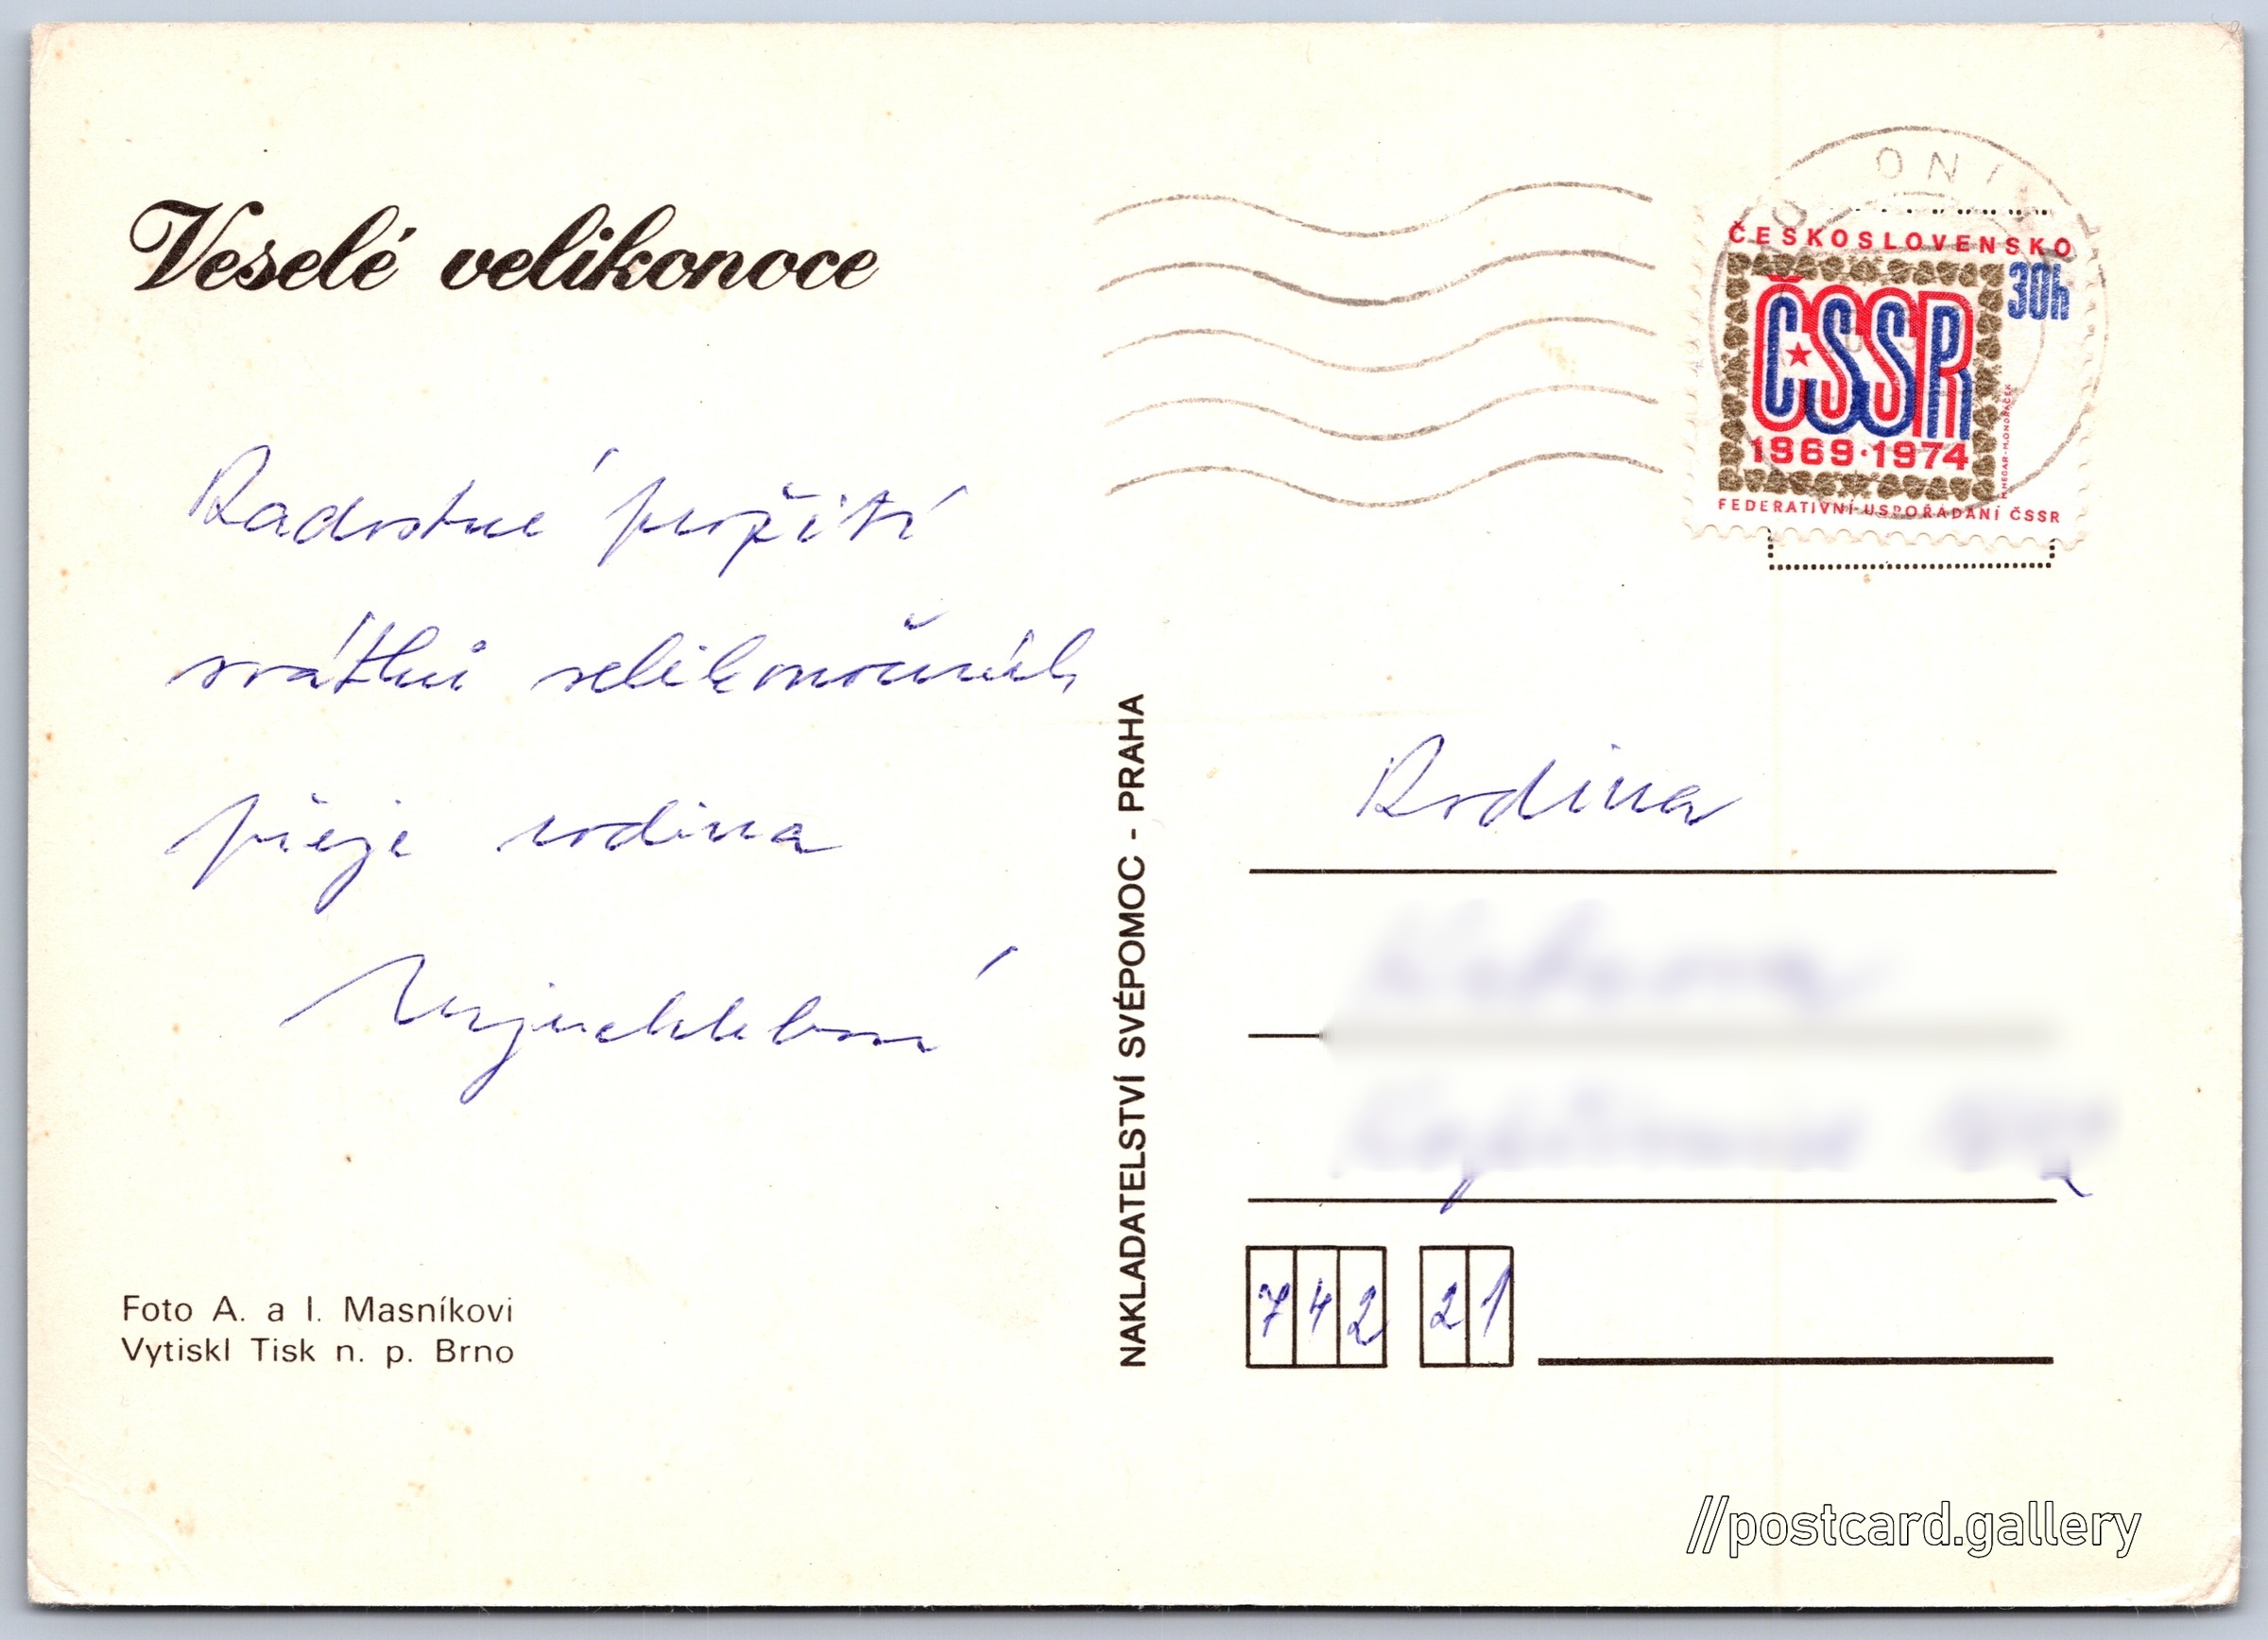 Veselé velikonoce
Radostné prožití
svátků velikonočních
přeje rodina
Foto A. a I. Masníkovi
Vytiskl Tisk n. p. Brno
NAKLADATELSTVÍ SVÉPOMOC - PRAHA
ČESKOSLOVENSKO
30h
ČSSR
1969·1974
M.HEGAR-M.ONDRÁČEK
FEDERATIVNÍ USPOŘÁDÁNÍ ČSSR
Rodina
742 21
//postcard.gallery